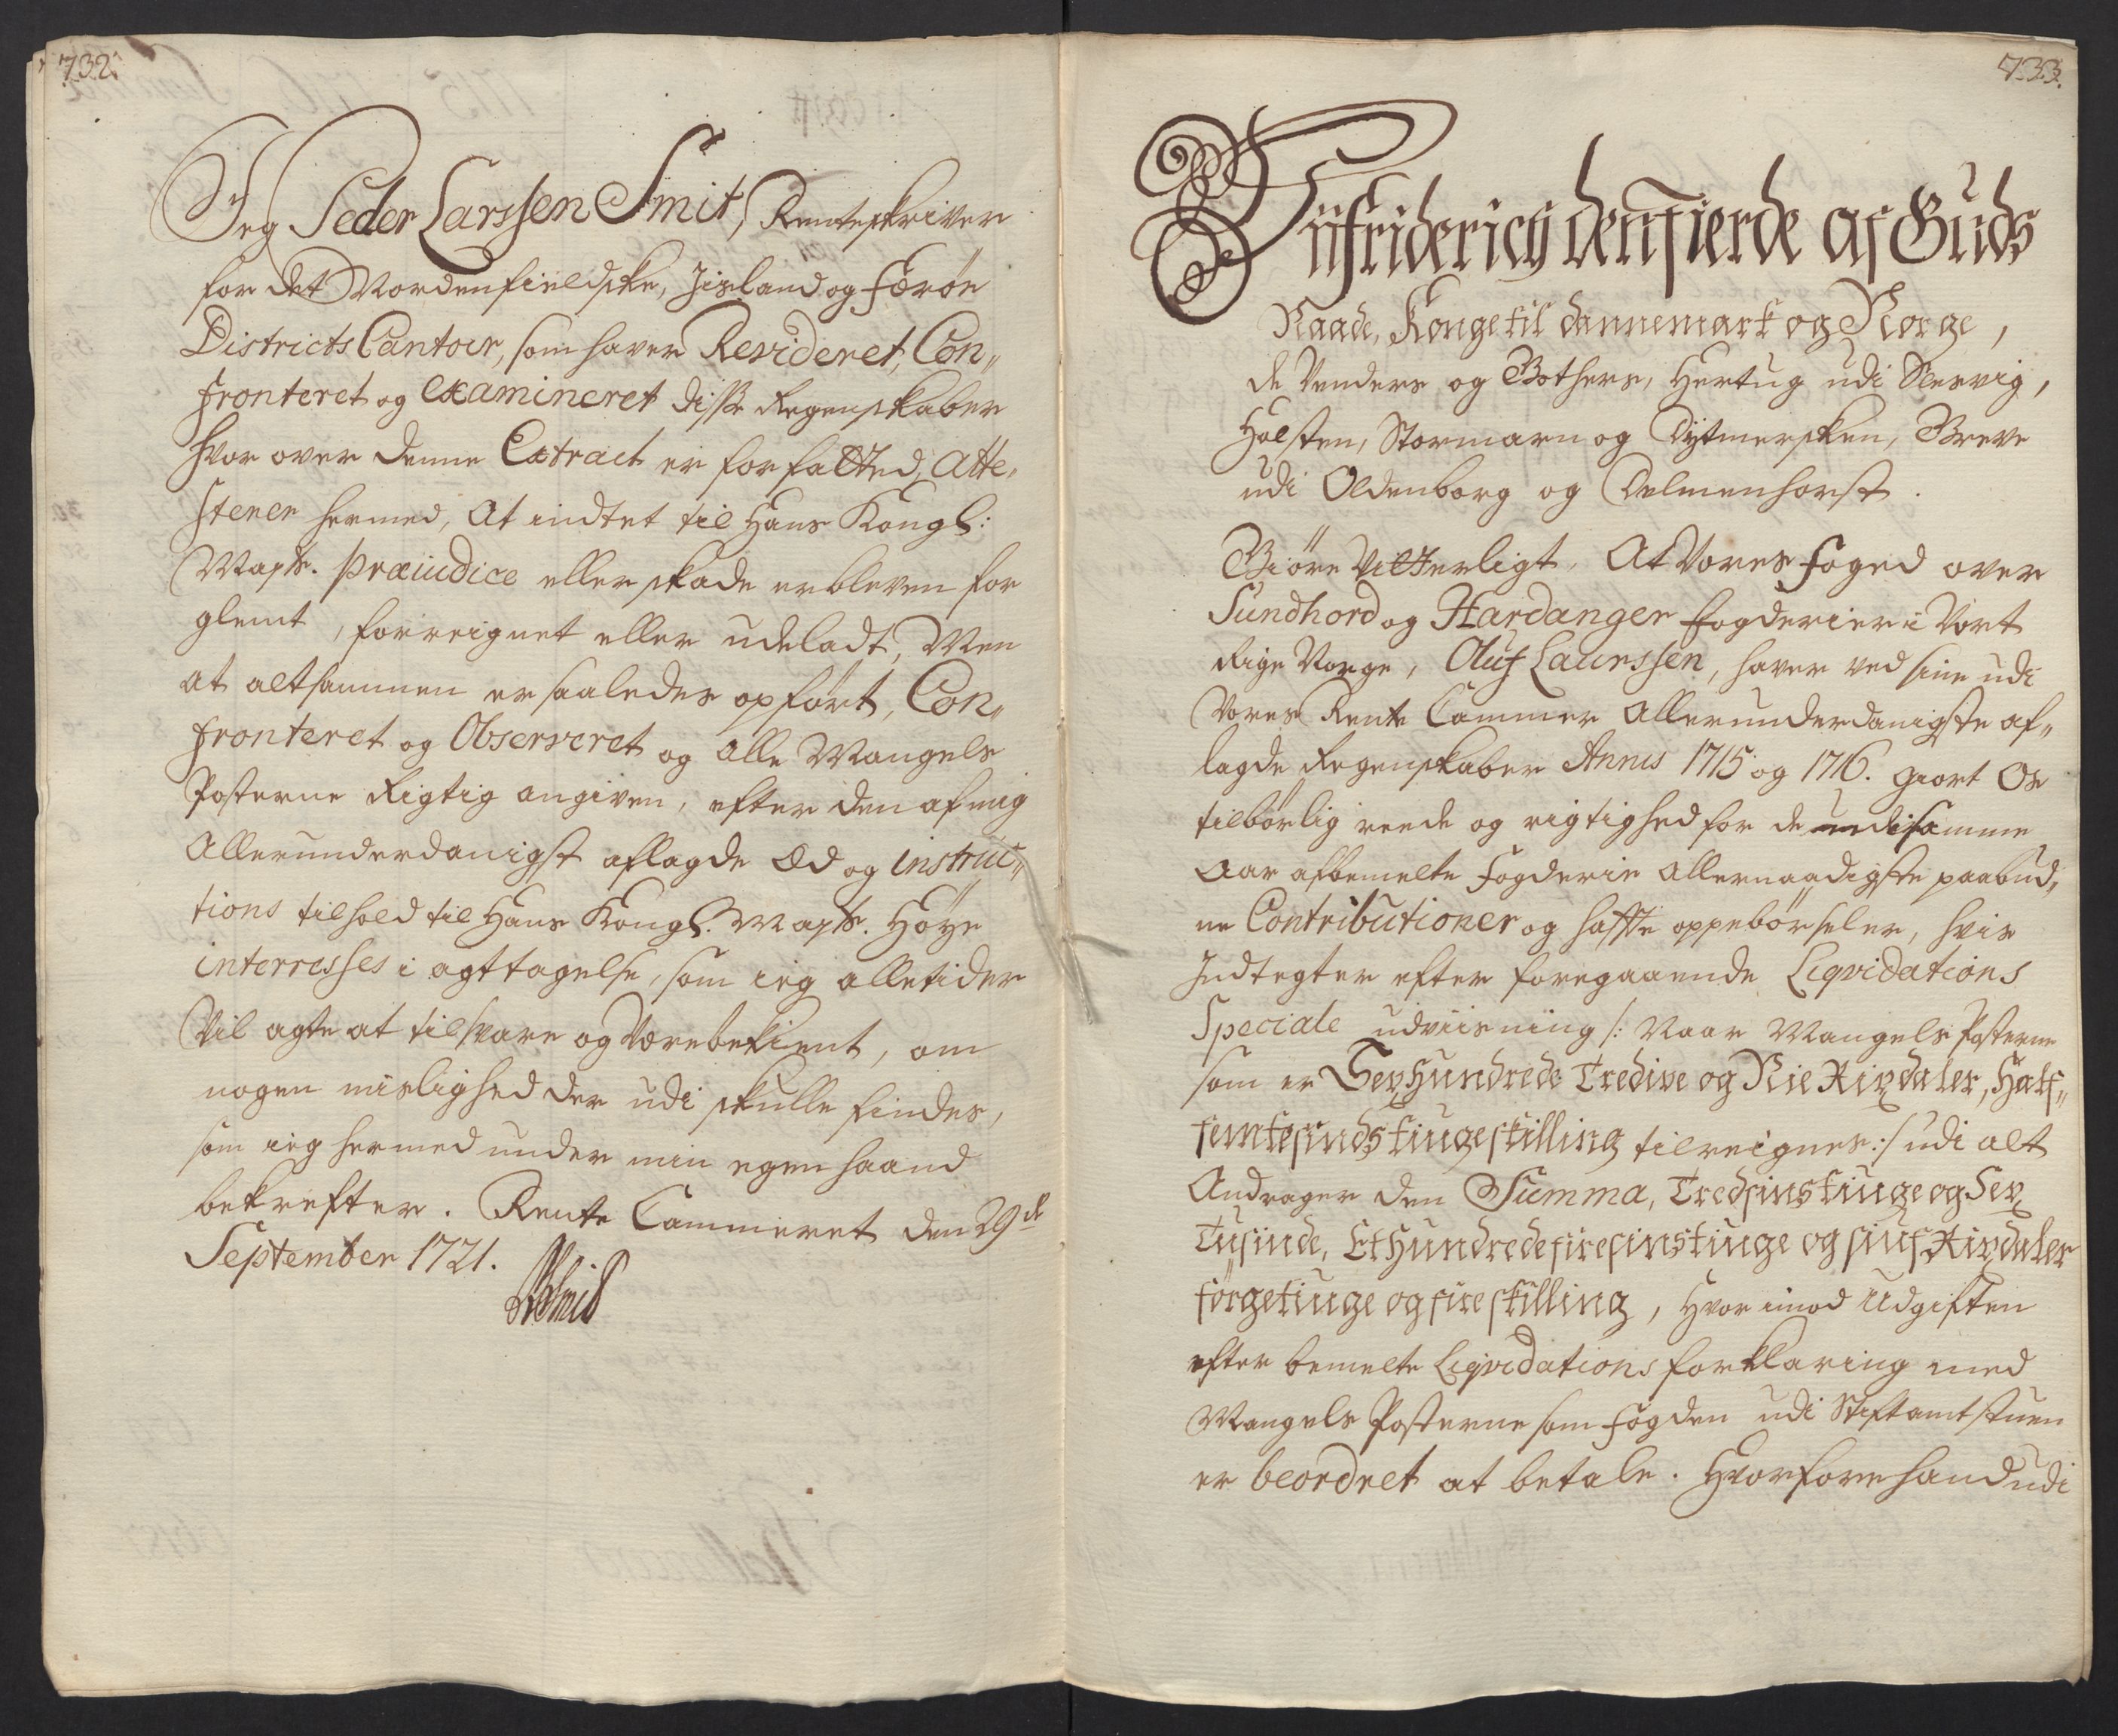 732.
Jeg Peder Larssen Smit, Renteskriver
for det Nordenfieldske, Jisland og Færöe
Districts Cantoir, som haver Revideret, Con„
fronteret og examineret disse Regenskaber
hvor over denne Extract er forfatted, Atte„
sterer hermed, At indtet til Hans Kongl:
Mayts. præiudice eller skade er bleven for
glemt, forreignet eller udeladt, Men
at altsammen er saaledes opfört, Con„
fronteret og Observeret og alle Mangels
Posterne Rigtig angiven, efter den af mig
Allerunderdanigst aflagde Æd og instruc„
tions tilhold til Hans Kongl. Mayts. Höye
interresses i agttagelse, som ieg alletider
Vil agte at tilsvare og Være bekient, om
nogen mislighed der udi skulle findes,
som ieg hermed under min egen haand
bekrefter. Rente Cammeret den 29de
September 1721.
PLSmid
733.
Wii Friderich den fierde af Guds
Naade, Konge til dannemark og Norge,
de Venders og Gothers, Hertug udi Slesvig,
Holsten, Stormarn og Dytmersken, Greve
udi Oldenborg og Delmenhorst.
Giöre Vitterligt, At Vores foged over
Sundhord og Hardanger fogderier i Vort
Rige Norge, Oluf Laurssen, haver ved sine udi
Vores Rente Cammer Allerunderdanigste af„
lagde Regenskaber Annis 1715 og 1716. giort Os
tilbörlig reede og rigtighed for de udi samme
Aar afbemelte Fogderie Allernaadigste paabud„
ne Contributioner og hafte oppebörseler, hvis
Indtegter efter foregaaende Liqvidations
Speciale udviisning /: Naar Mangels Posterne
som er Sex Hundrede Tredive og Nie Rixdaler, Half„
femtesinds tiuge skilling tilreignes :/ udi alt
Andrager den Summa, Tredsinstiuge og Sex
Tusinde, Et Hundrede firesinstiuge og siuf Rixdaler
förgetiuge og fire skilling, Hvor imod Udgiften
efter bemelte Liqvidations forklaring med
Mangels Posterne som fogden udi Stiftamtstuen
er beordret at betale. Hvorfore hand udi